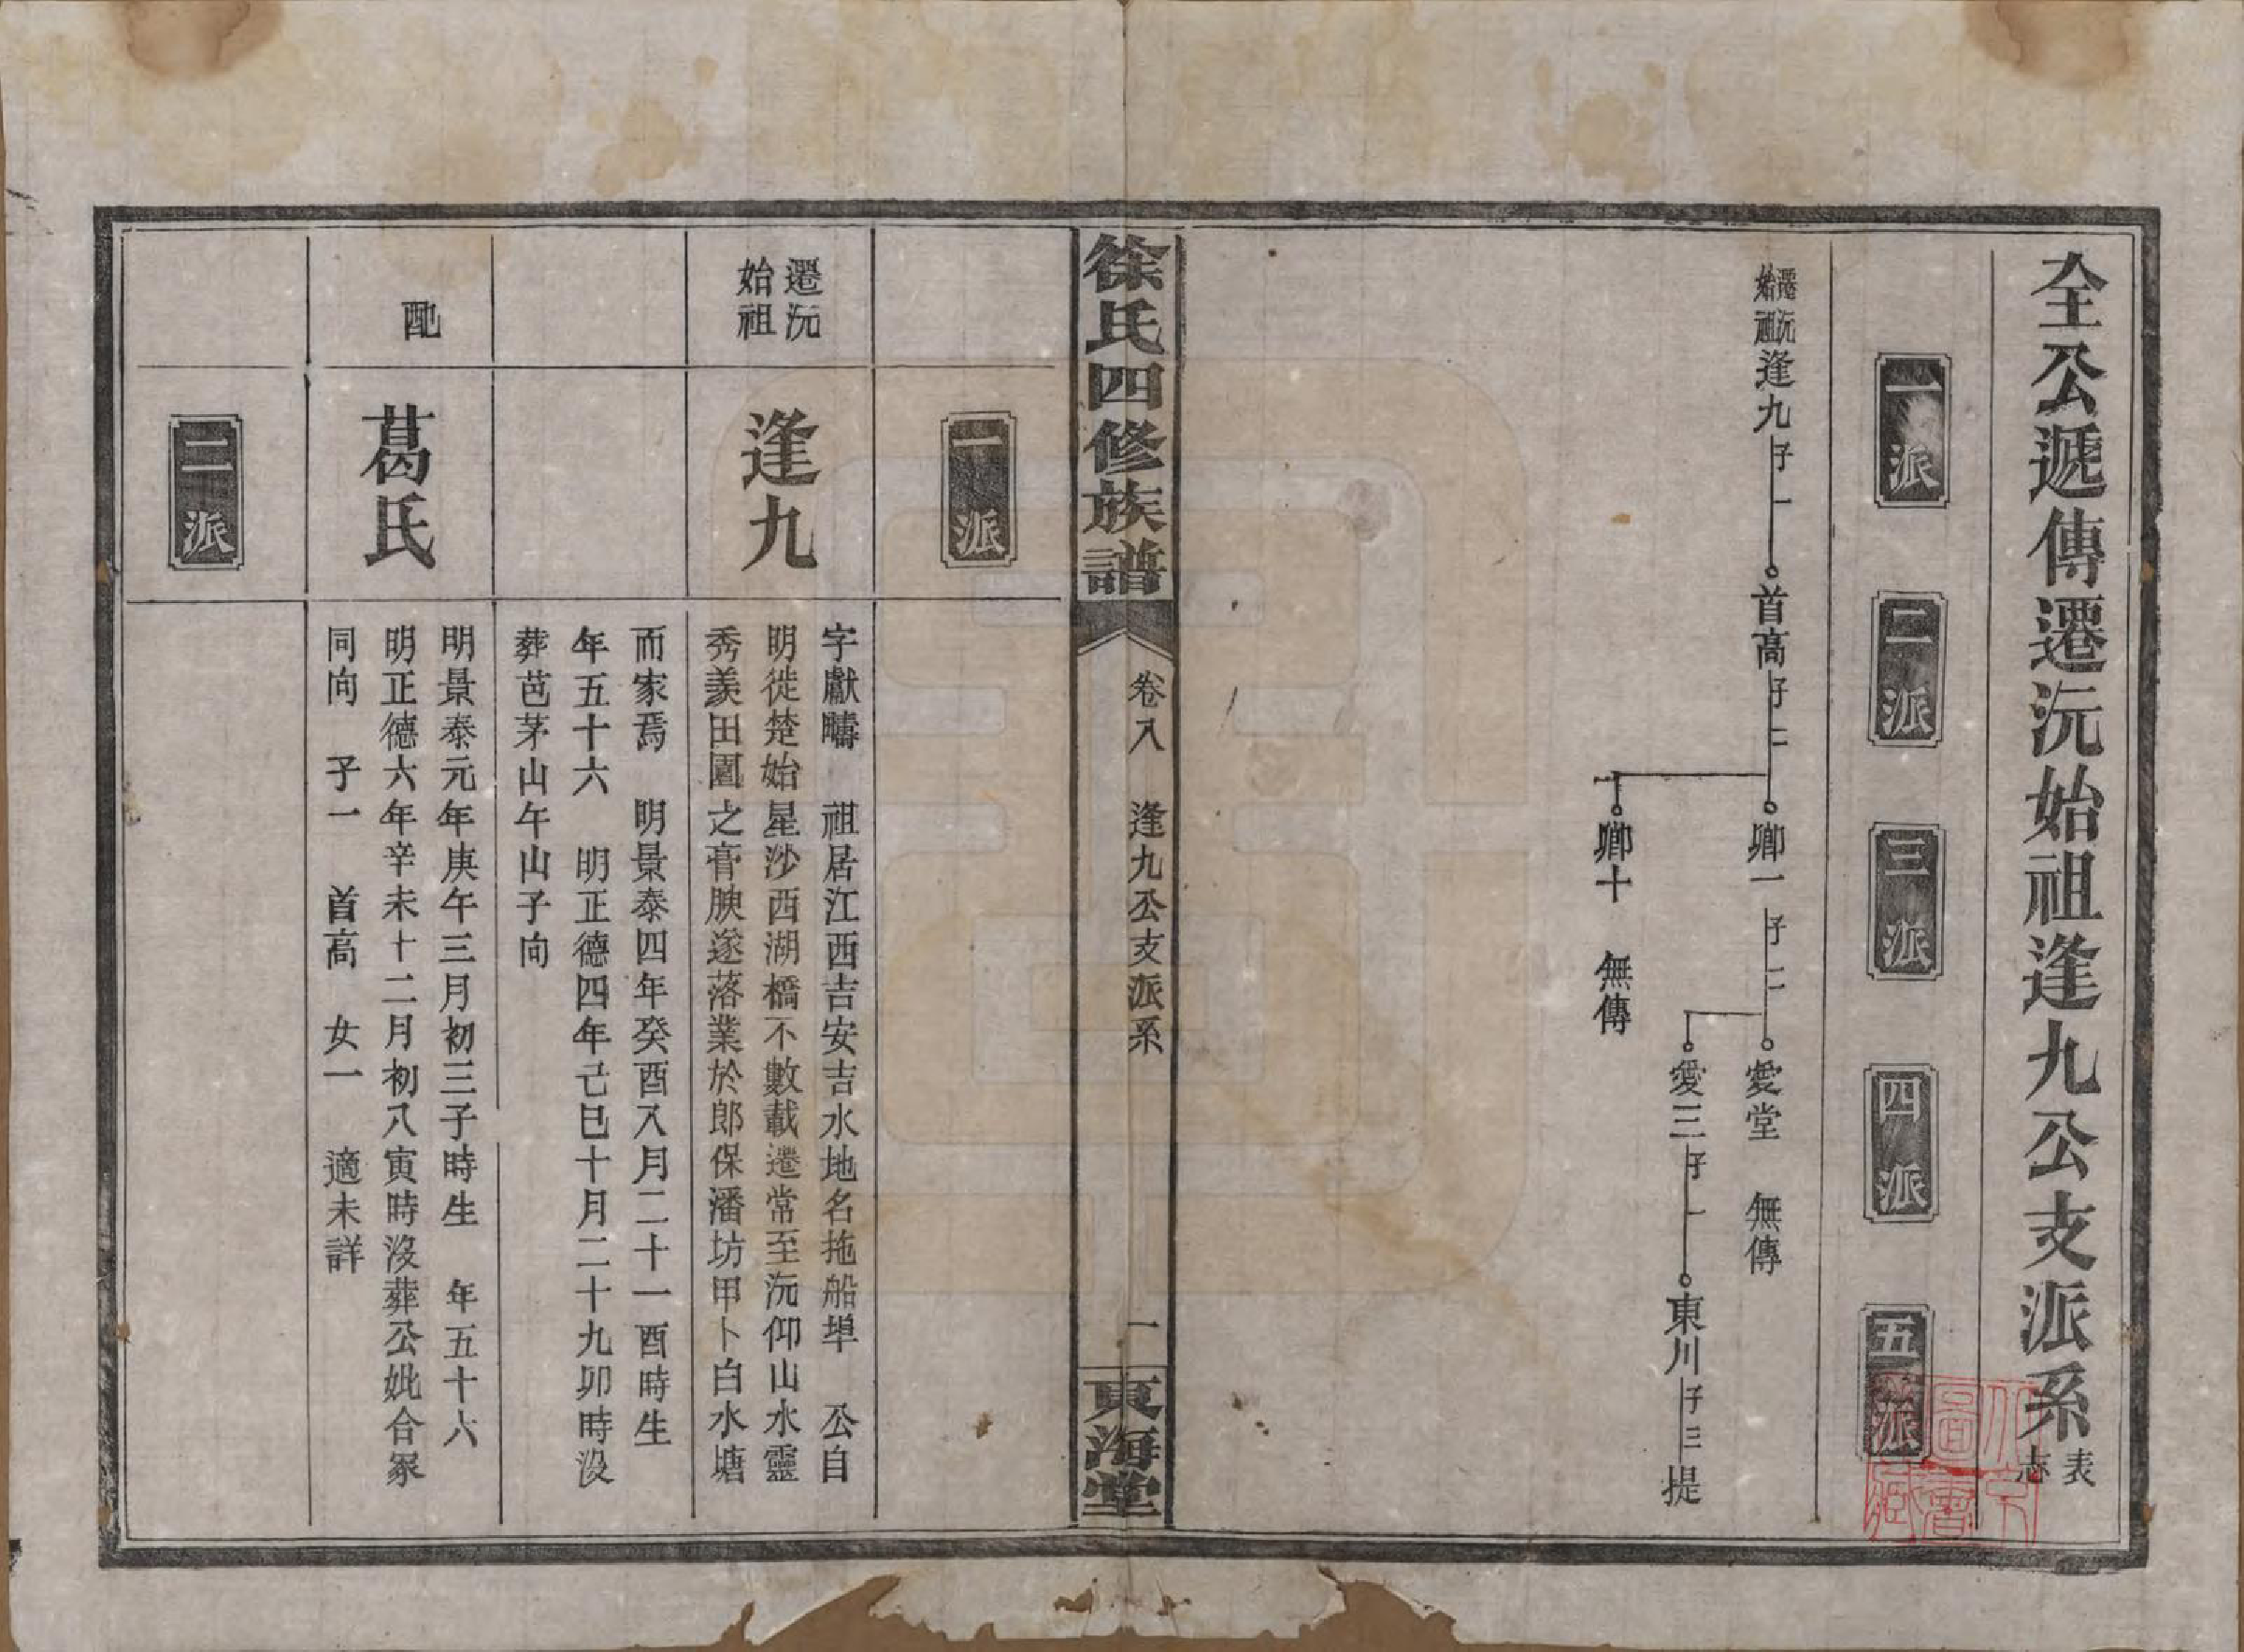 全公遞傳遷沅始祖逢九公支派系表志
一派
二派
三派
四派
五派
遷沅始祖逢九 子一 首高 子二 卿一 子二 愛堂 無傳
愛三 子一 東川 子三 提
卿十 無傳
徐氏四修族譜 卷八 逢九公支派系 一 東海堂
一派
遷沅始祖
逢九
字獻疇 祖居江西吉安吉水地名拖船埠 公自
明徙楚始星沙西湖橋不數載遷常至沅仰山水靈
秀羨田園之膏腴遂落業於郎保潘坊甲卜白水塘
而家焉 明景泰四年癸酉八月二十一酉時生
年五十六 明正德四年己巳十月二十九卯時沒
葬芭茅山午山子向
配
葛氏
明景泰元年庚午三月初三子時生 年五十六
明正德六年辛未十二月初八寅時沒葬公妣合冢
同向 子一 首高 女一 適未詳
二派